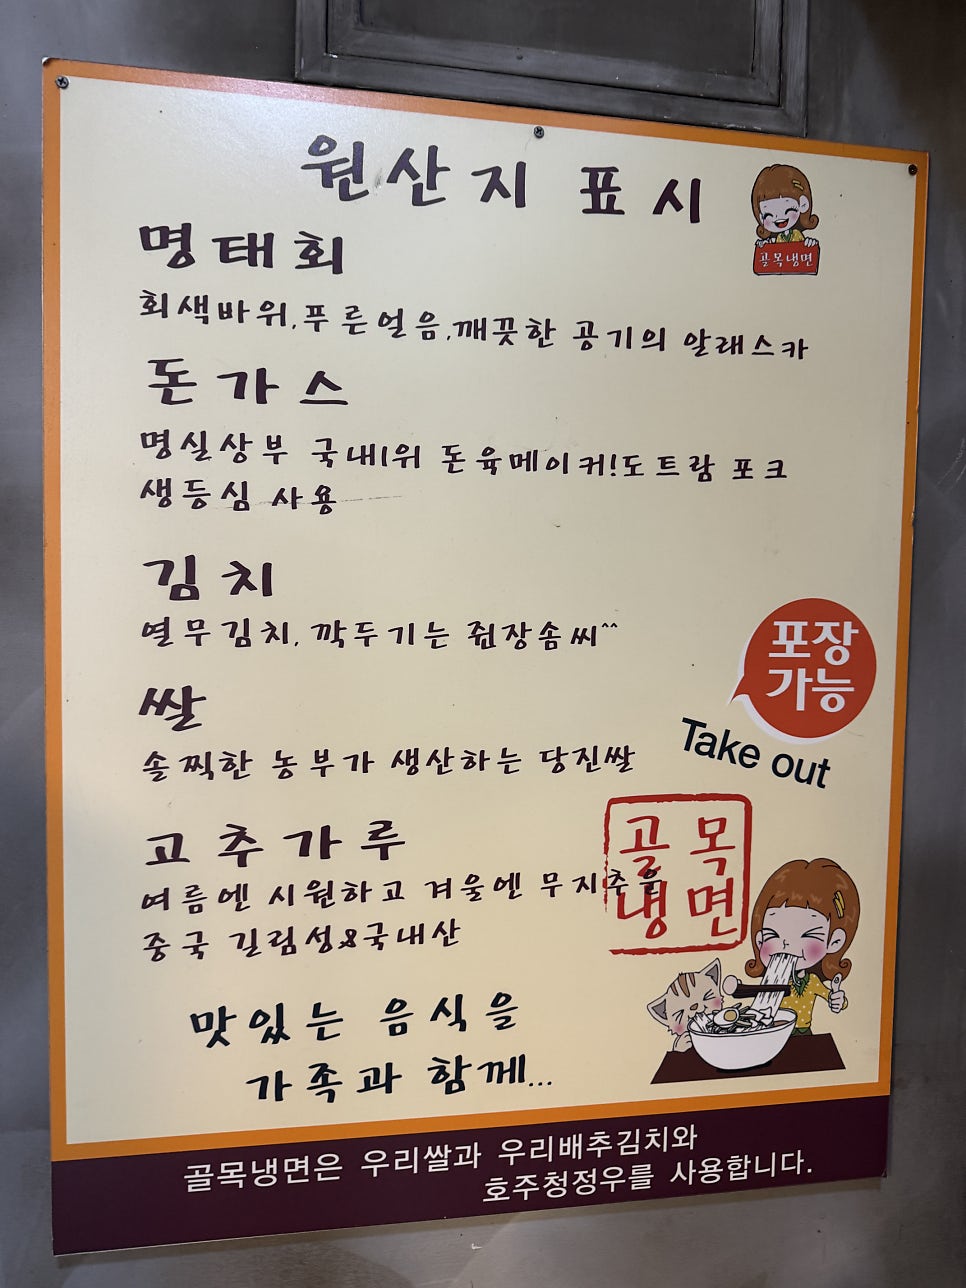 원산지 표시
골목냉면
명태회
회색바위,푸른얼음,깨끗한 공기의 알래스카
돈가스
명실상부 국내1위 돈육메이커!도트람 포크
생등심 사용
김치
열무김치, 깍두기는 쥔장솜씨^^
쌀
솔찍한 농부가 생산하는 당진쌀
포장
가능
Take out
고추가루
여름엔 시원하고 겨울엔 무지추운
중국 길림성&국내산
골목
냉면
맛있는 음식을
가족과 함께...
골목냉면은 우리쌀과 우리배추김치와
호주청정우를 사용합니다.